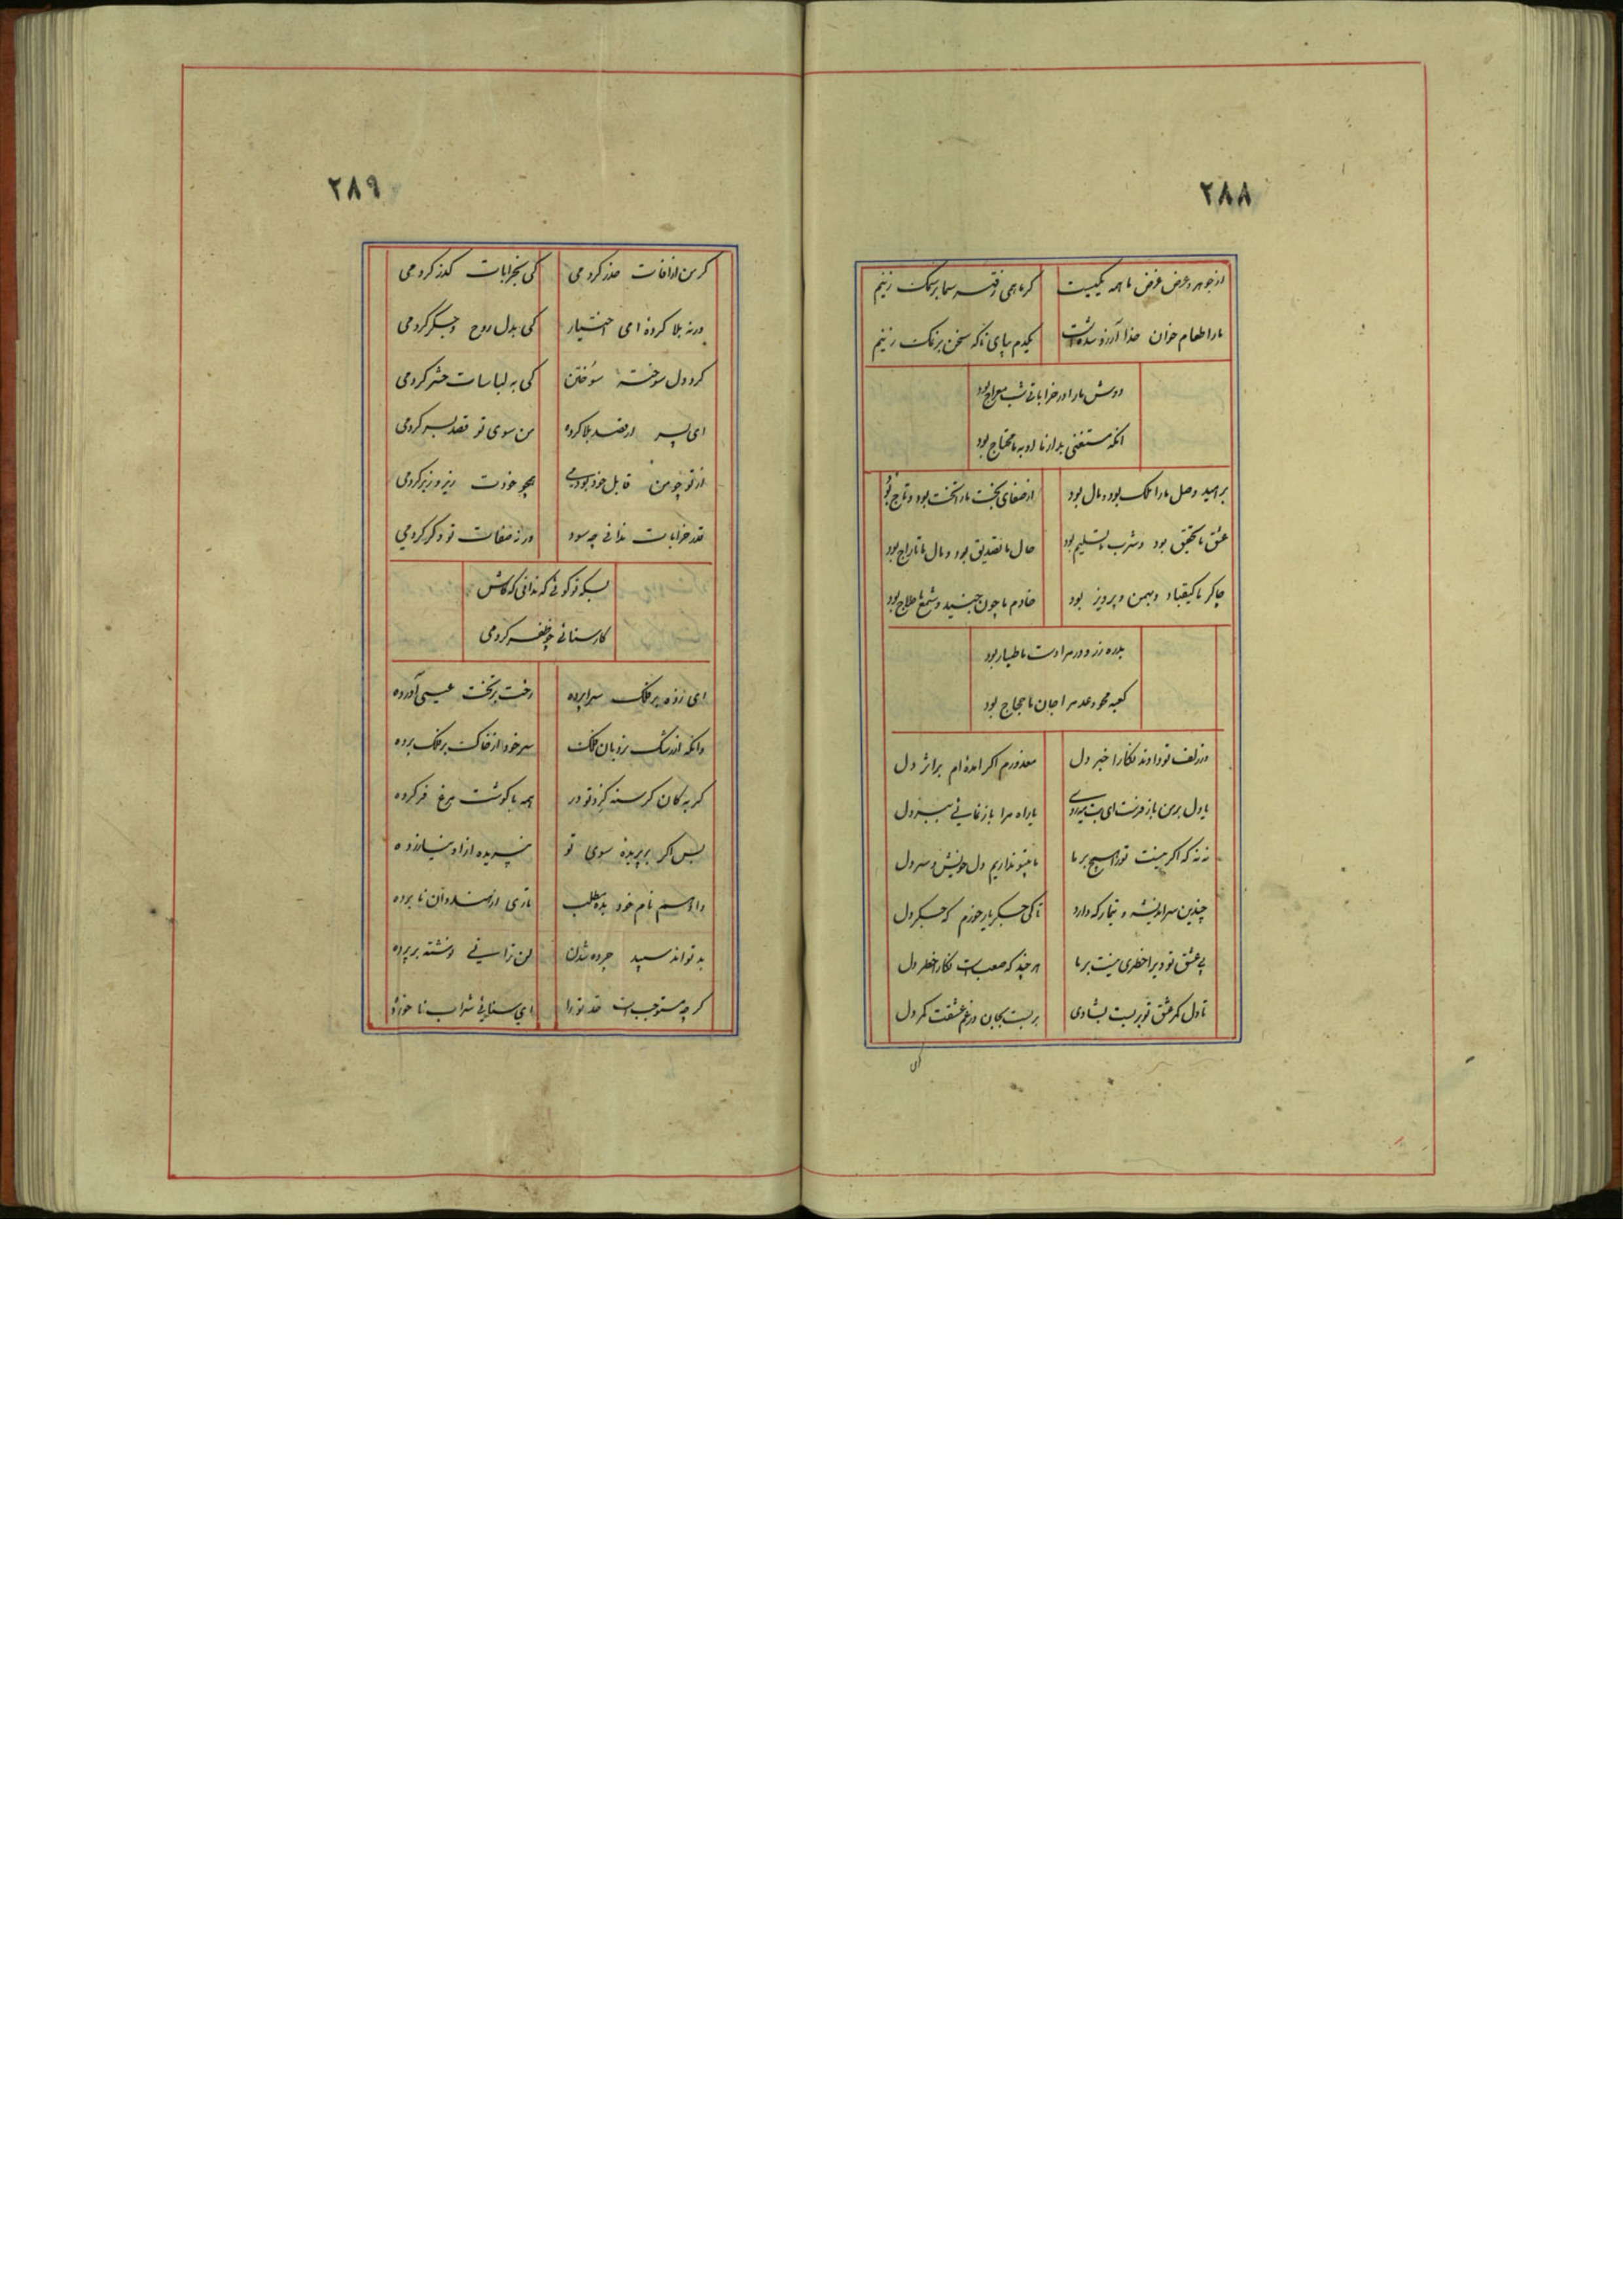 ۲۸۸
از جوهر و عرض غرض ما همه یکیست گر ماهمی و قسمه سما بر سمک زنیم
ما را طعام خوان خدا آرزو شده است یکدم بپای تا که سخن بر نمک زنیم
دوش ما را در خراباتی شب معراج بود
انکه مستغنی بد از ما او به ما محتاج بود
بر امید وصل ما را ملک بود و مال بود از صفای بخت ما را تخت بود و تاج بود
عشق ما تحقیق بود و شرب ما تسلیم بود حال ما تصدیق بود و مال ما تاراج بود
چاکر ما کیقباد و بهمن و پرویز بود خادم ما چون جنید و شمع ما حلاج بود
بدره زر و درم را دست ما طیار بود
کعبه محو عدم را جان ما حجاج بود
در زلف تو دادند نگارا خبر دل معذورم اکر امده ام بر اثر دل
یا دل بر من باز فرست ای بت یا راه مرا باز نمائی ببر دل
نه نه که اکر نیست تو را هیچ سر ما ما بیتو نداریم دل خویش و سر دل
چندین سر اندیشه و تیمار که دارد تا کی جکر یار خورم که جکر دل
بی عشق تو دیرا خطری نیست بر ما هر چند که صعب است نگارا خطر دل
تا دل کمر عشق تو بر بست بشادی بر بست بجان در غم عشقت کمر دل
ای
۲۸۹
کر من از افات حذر کردمی کی بخرابات کذر کردمی
ورنه بلا کرده امی اختیار کی بدل روح و جکر کردمی
کر دل سوخته سوختن کی به لباسات حشر کردمی
ای پسر ار قصد بلا کرده من سوی تو قصد بسر کردمی
از تو چو من قابل خود بودمی همچو خودت زیر و زبر کردمی
قدر خرابات ندانی چه سود ور نه صفات تو دکر کردمی
بسکه تو کوئی که ندانی که کاش
کار سنائی چو ظفر کردمی
ای زده بر فلک سراپرده رخت بر تخت عیسی آورده
وانکه از سر خود از خاک بر فلک برده
کربه کان کرسنه کرد تو در همه با کوشت مرغ خو کرده
پس اکر بر پریده سوی تو نپریده از او نیازرده
دادستم نام خود مطلب تازی از هندوان نا برده
بد تواند سپید چرده شدن لن ترانی نوشته بر پرده
کر چه مستوجب است حد تو را ای سنائی شراب نا خورده